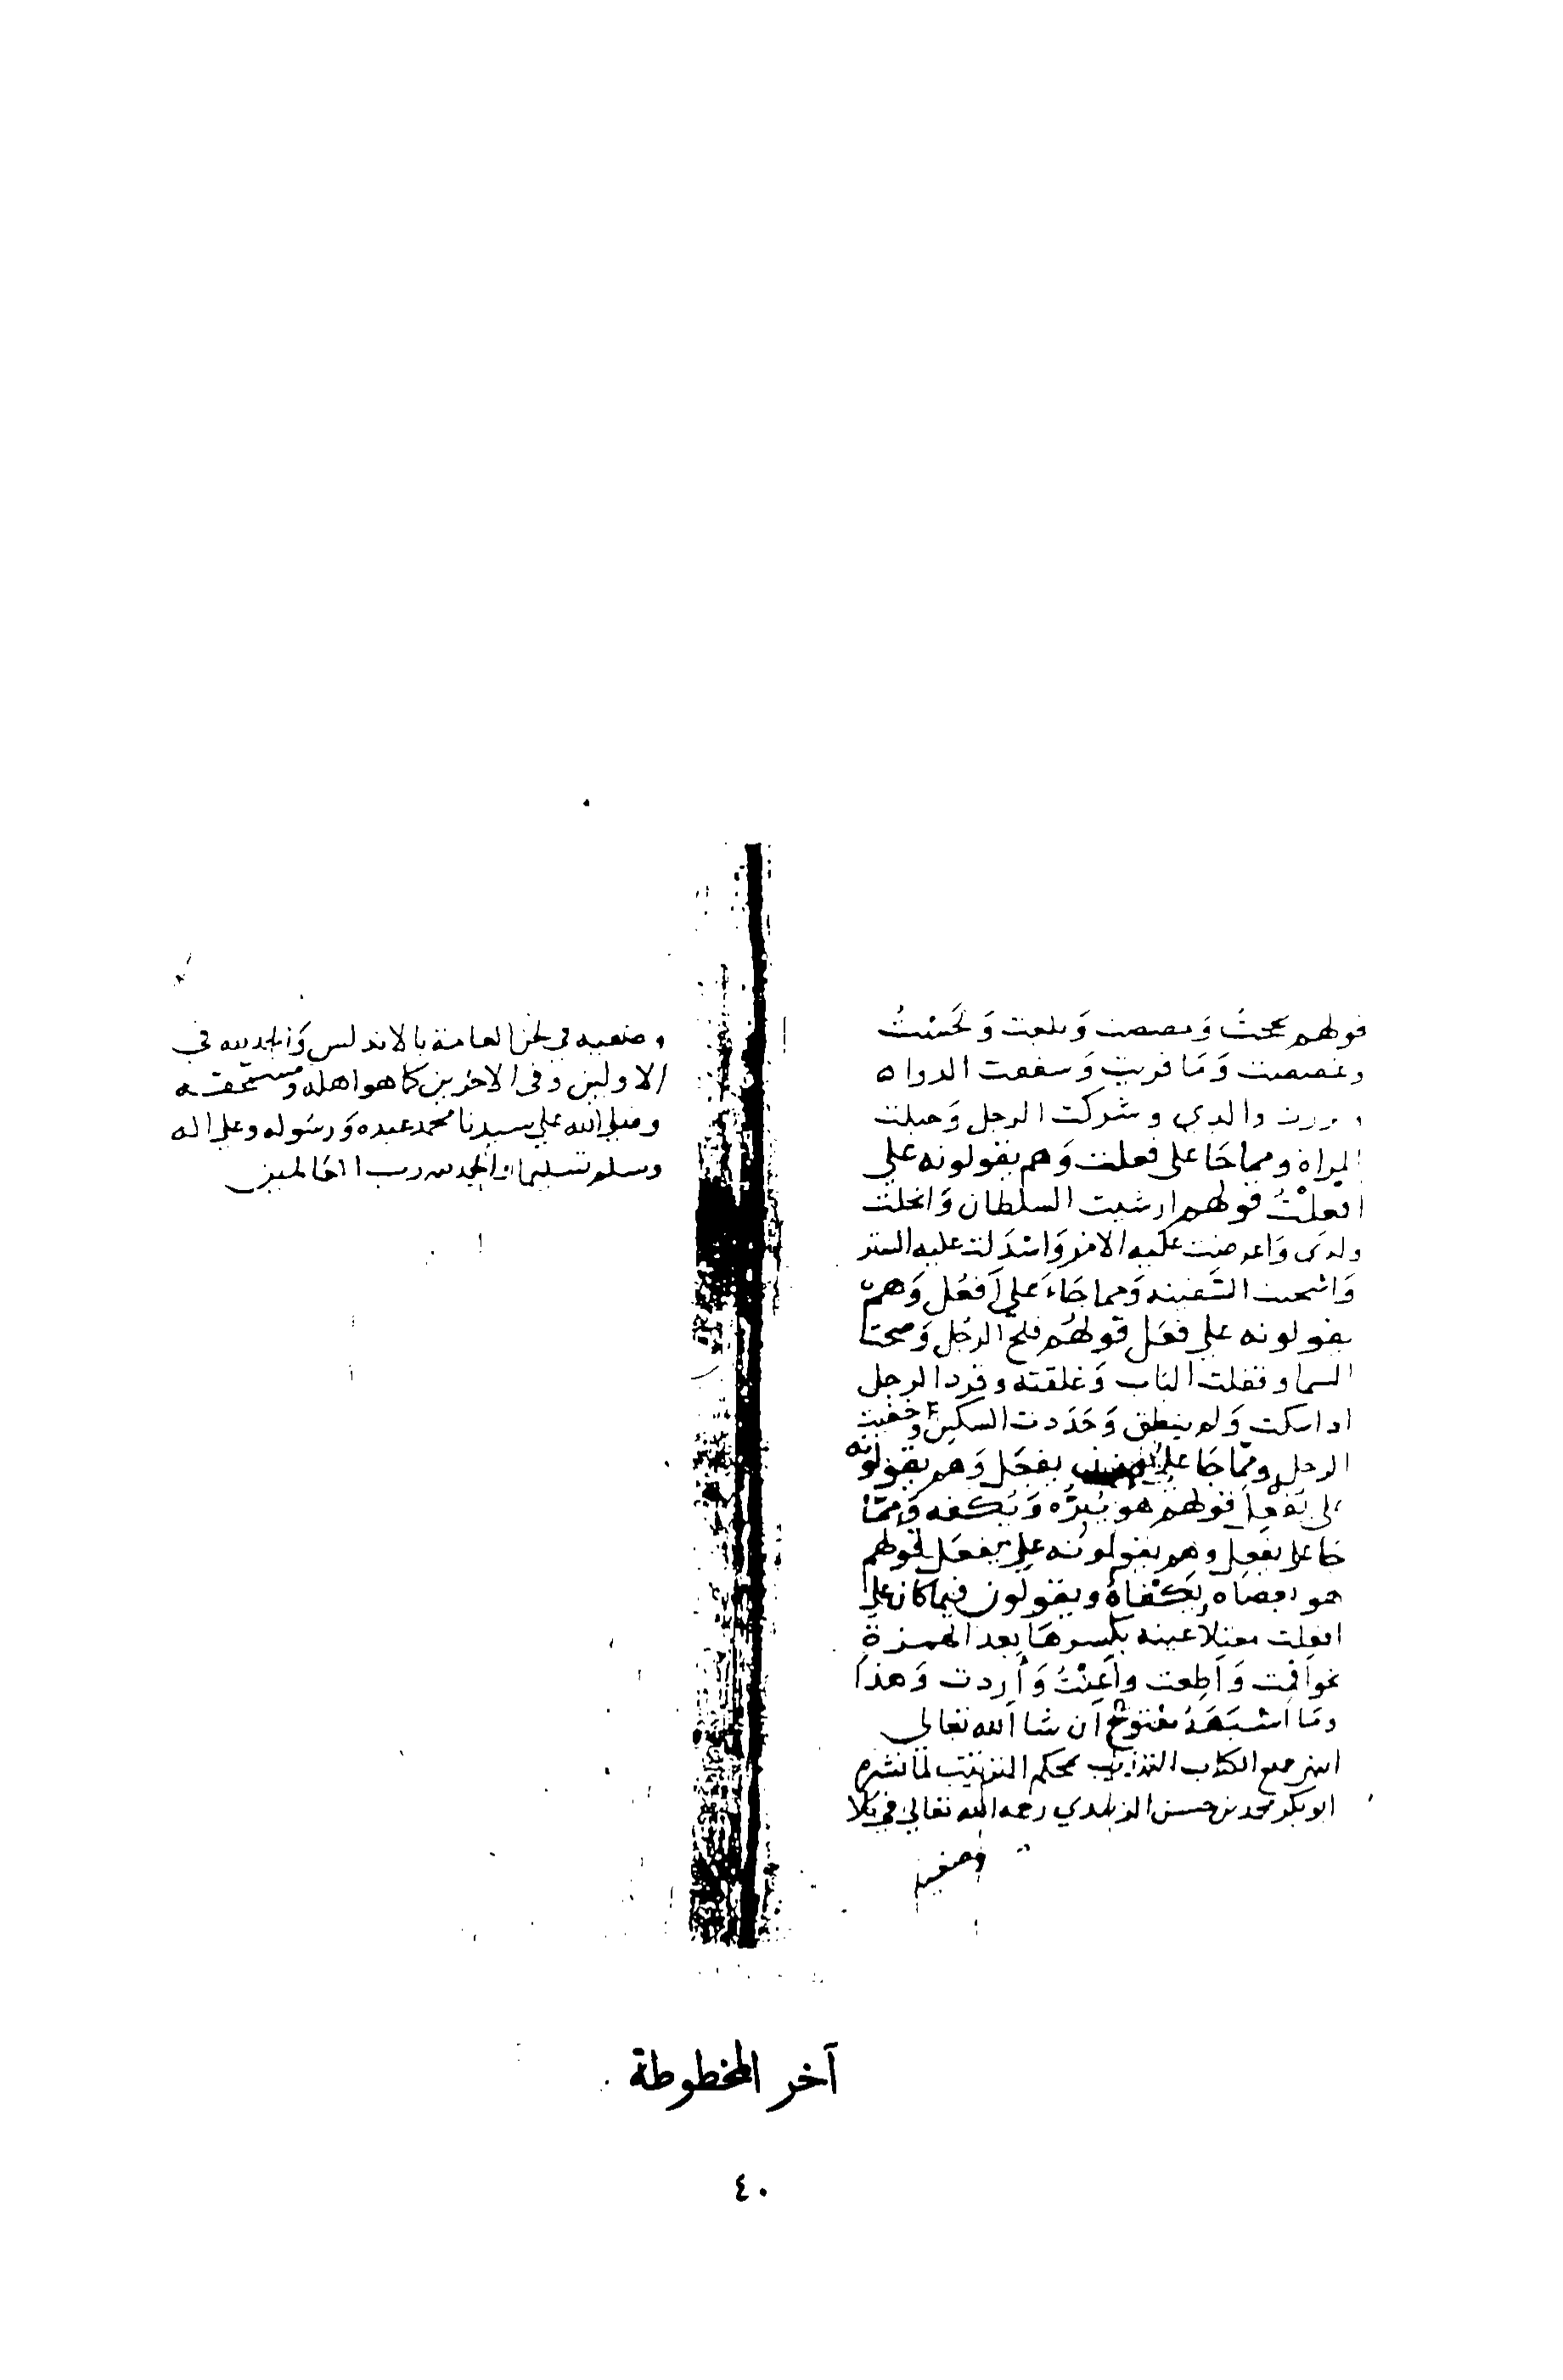 قولهم عجت ومصصت وبلعت ولحست
وغصصت وما قربت وسففت الدواه
بررت والدي وشركت الرجل وحبلت
المراة ومما جا على فعلت وهم يقولونه على
افعلت قولهم ارشيت السلطان وانحلت
ولدى واعرضت عليه الامر واسدلت عليه الستر
واشحنت السفينه ومما جاء على أفعل وهم
يقولونه على فعل قولهم فلح الرجل وصحت
السما وقفلت الباب وغلقته وقرد الرجل
اذا سكت ولم ينطق وحددت السكين وخفيت
الرجل ومما جا على يفعل وهم يقولونه
على يفعل قولهم هو يبزه ويكفه ومما
جا على يفعل وهم يقولونه على يفعل لقولهم
هو يكفاه ويقولون فيما كان على
افعلت معتلا عينه بكسرها بعد الهمزة
نحو اقمت وأطعت وأعنت وأردت وهذا
وما اشبهه مفتوح ان شا الله تعالى
الكتاب بحكم لما نشره
ابو بكر محمد بن حسن الزبيدي رحمه الله تعالى في كلا
وضعيه
وضعيه في لحن العامة بالاندلس والحمد لله في
الاولين وفي الاخرين كما هو اهله ومستحقه
وصلى الله على سيدنا محمد عبده ورسوله وعلى اله
وسلم تسليما والحمد لله رب العالمين
آخر المخطوطة
٤٠